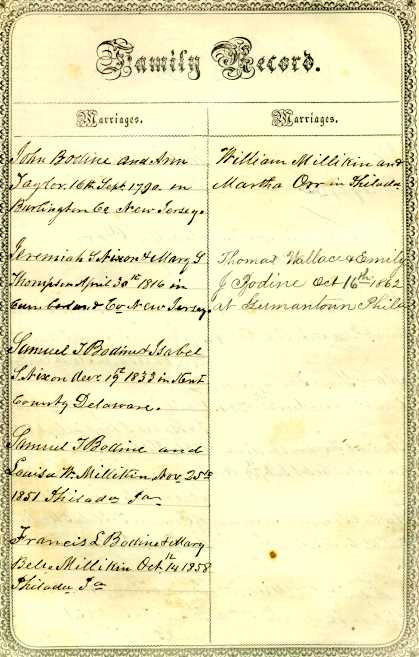 Family Record.
Marriages.
John Bodine and Ann
Taylor, 16th Sept 1790. in
Burlington Co New Jersey.
Jeremiah S Nixon & Mary S
Thompson April 30th 1816 in
Cumberland Co New Jersey.
Samuel T Bodine & Isabel
S Nixon Dec 19th 1833 in Kent
County Delaware.
Samuel T Bodine and
Louisa W. Millikin Nov. 25th
1851 Philada Pa
Francis L Bodine & Mary
Bell Millikin Oct. 14th 1858
Philada Pa
Marriages.
William Millikin and
Martha Orr in Philada
Thomas Wallace & Emily
J Bodine Oct 16th 1862
at Germantown Phila